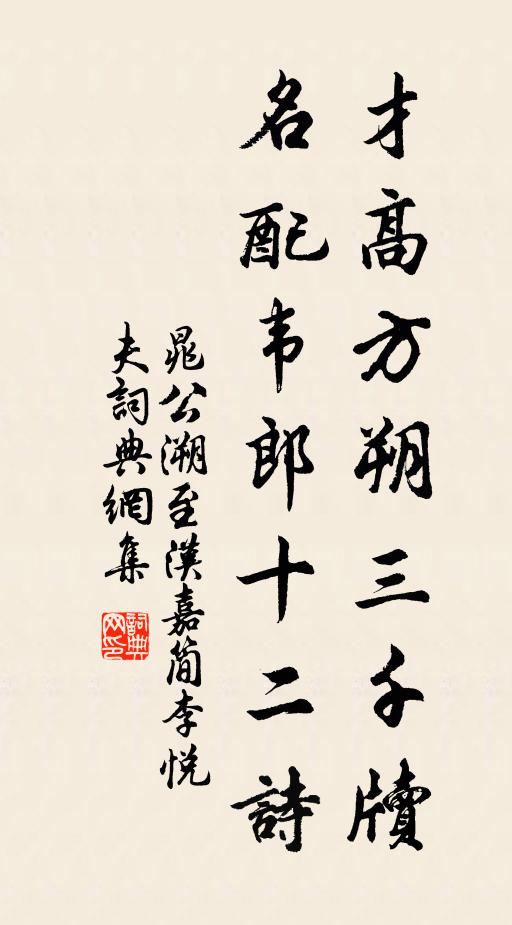 才高方朔三千牘
名配韦郎十二詩
晁公溯至漢嘉简李悦
夫詞典網集
詞典
网印